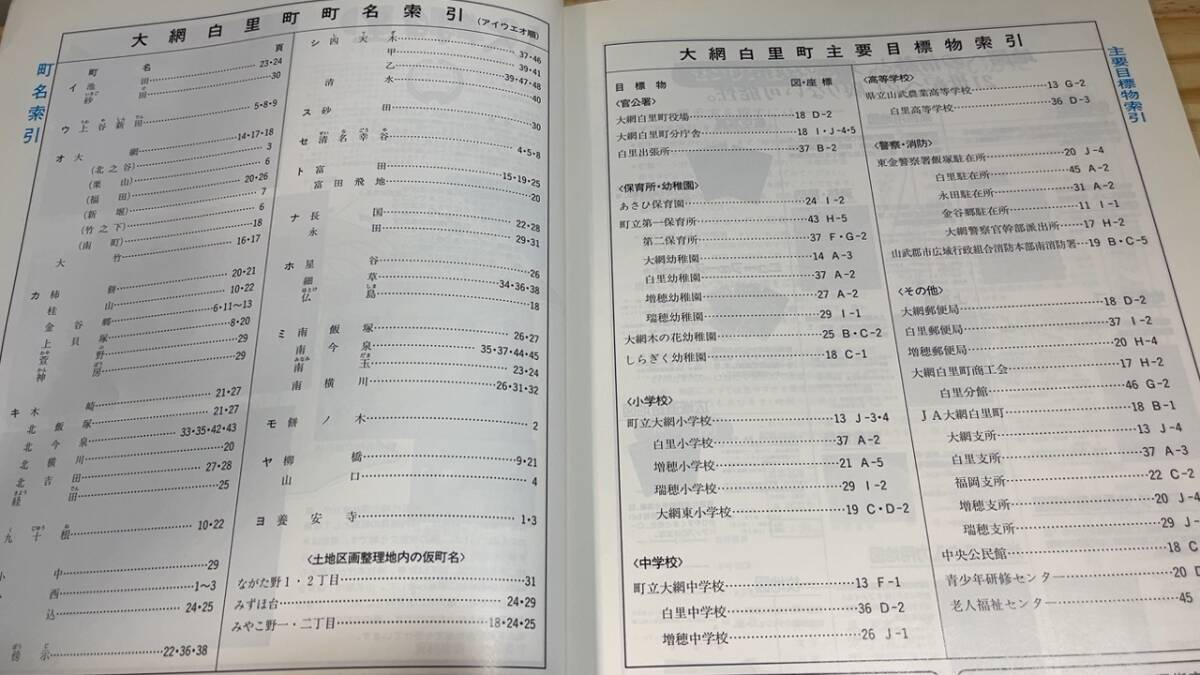 大網白里町町名索引(アイウエオ順)
町名索引
町名 頁
イ 池田 23・24
砂田 30
ウ 上谷新田 5・8・9
オ 大網 14・17・18
(北之谷) 3
(栗山) 6
(福田) 20・26
(新堀) 7
(竹之下) 6
(南町) 18
大竹 16・17
カ 柿餅 20・21
桂山 10・22
金谷郷 6・11〜13
上貝塚 8・20
萱野 29
神房 29
キ 木崎 21・27
北飯塚 21・27
北今泉 33・35・42・43
北横川 20
北吉田 27・28
経田 25
九十根 10・22
中 29
西 1〜3
込 24・25
傍示 22・36・38
シ 四天木 37・46
甲 39・41
乙 39・47・48
清水 40
ス 砂田 30
セ 清名幸谷 4・5・8
ト 富田 15・19・25
富田飛地 20
ナ 長国 22・28
永田 29・31
ホ 星谷 26
細草 34・36・38
仏島 18
ミ 南飯塚 26・27
南今泉 35・37・44・45
南玉 23・24
南横川 26・31・32
モ 餅ノ木 2
ヤ 柳橋 9・21
山口 4
ヨ 養安寺 1・3
〈土地区画整理地内の仮町名〉
ながた野1・2丁目 31
みずほ台 24・29
みやこ野一・二丁目 18・24・25
大網白里町主要目標物索引
主要目標物索引
目標物 図・座標
〈官公署〉
大網白里町役場 18 D-2
大網白里町分庁舎 18 I・J-4・5
白里出張所 37 B-2
〈保育所・幼稚園〉
あさひ保育園 24 I-2
町立第一保育所 43 H-5
第二保育所 37 F・G-2
大網幼稚園 14 A-3
白里幼稚園 37 A-2
増穂幼稚園 27 A-2
瑞穂幼稚園 29 I-1
大網木の花幼稚園 25 B・C-2
しらぎく幼稚園 18 C-1
〈小学校〉
町立大網小学校 13 J-3・4
白里小学校 37 A-2
増穂小学校 21 A-5
瑞穂小学校 29 I-2
大網東小学校 19 C・D-2
〈中学校〉
町立大網中学校 13 F-1
白里中学校 36 D-2
増穂中学校 26 J-1
〈高等学校〉
県立山武農業高等学校 13 G-2
白里高等学校 36 D-3
〈警察・消防〉
東金警察署飯塚駐在所 20 J-4
白里駐在所 45 A-2
永田駐在所 31 A-2
金谷郷駐在所 11 I-1
大網警察官幹部派出所 17 H-2
山武郡市広域行政組合消防本部南消防署 19 B・C-5
〈その他〉
大網郵便局 18 D-2
白里郵便局 37 I-2
増穂郵便局 20 H-4
大網白里町商工会 17 H-2
白里分館 46 G-2
JA大網白里町 18 B-1
大網支所 13 J-4
白里支所 37 A-3
福岡支所 22 C-2
増穂支所 20 J-4
瑞穂支所 29 J-
中央公民館 18 C
青少年研修センター 20 D
老人福祉センター 45